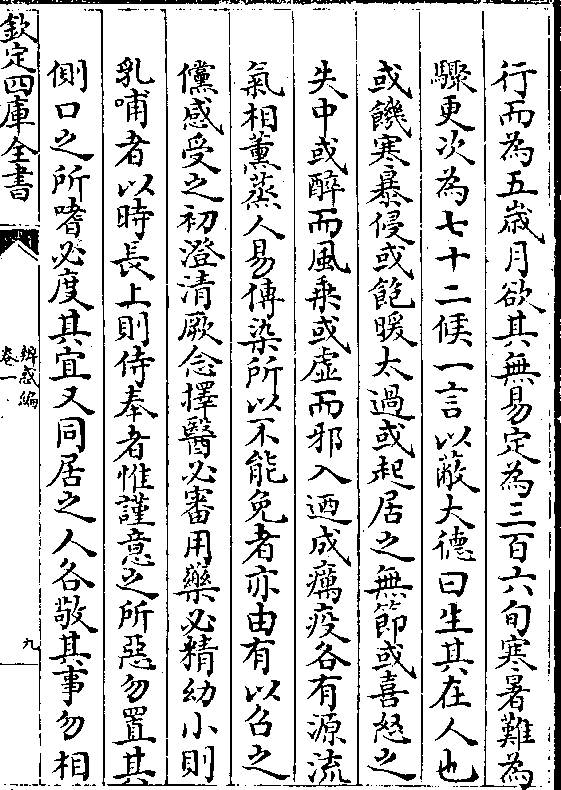 行而為五歲月欲其無易定為三百六旬寒暑難為
驟更次為七十二候一言以蔽大德曰生其在人也
或饑寒暴侵或飽暖太過或起居之無節或喜怒之
失中或醉而風乗或虛而邪入迺成癘疫各有源流
氣相薰蒸人易傳染所以不能免者亦由有以召之
儻感受之初澄清厥念擇醫必審用藥必精幼小則
乳哺者以時長上則侍奉者惟謹意之所惡勿置其
側口之所嗜必度其宜又同居之人各敬其事勿相
欽定四庫全書
辨惑編
卷一
九